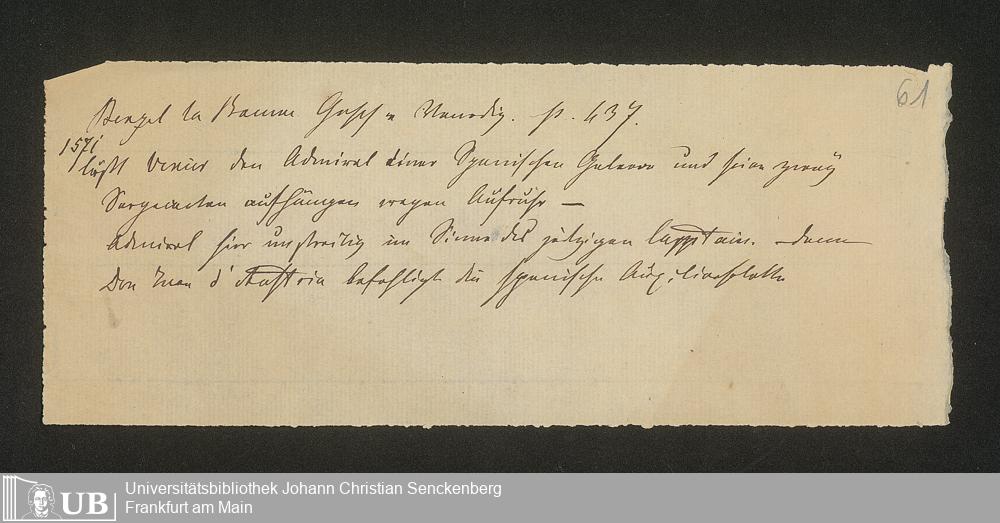 61
Bengel la Baume Gesch v Venedig. p. 437.
1571
läßt Venier den Admiral einer Spanischen Galeere und seine zwey
Sergeanten aufhängen wegen Aufruhr —
Admiral hier unstreitig im Sinne des jetzigen Capitain. – denn
Don Juan d'Austria befehligte die spanische Auxiliarflotte
UB
Universitätsbibliothek Johann Christian Senckenberg
Frankfurt am Main